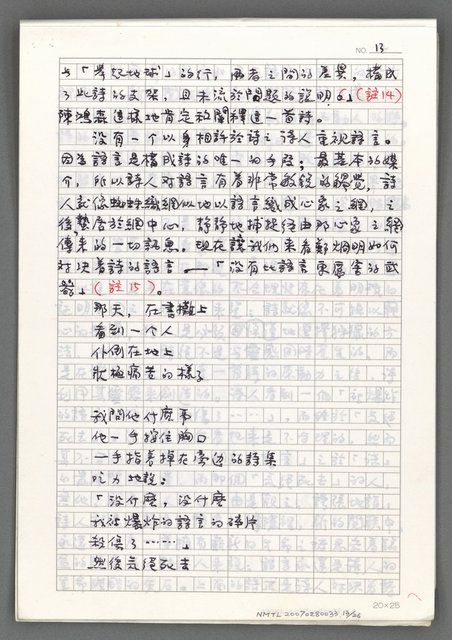 NO. 13
與「舉起地球」的行，兩者之間的差異，構成
了此詩的支架，且未流於闡題的說明。」(註14)
陳鴻森這樣地肯定和闡釋這一首詩。
沒有一個以身相許於詩之詩人重視語言。
因為語言是構成詩的唯一的手段；最基本的媒
介，所以詩人對語言有着非常敏銳的觸覺，詩
人就像蜘蛛織網似地以語言織成心象之網，之
後，蟄居於網中心，靜靜地捕捉經由那心象之網
傳來的一切訊息，現在讓我們來看鄭炯明如何
對決着詩的語言——「沒有比語言更厲害的武
器」(註15)。
那天，在書攤上
看到一個人
仆倒在地上
狀極痛苦的樣子
我問他什麼事
他一手撐住胸口
一手指着掉在旁邊的詩集
吃力地說：
「沒什麼，沒什麼
我被爆炸的語言的碎片
殺傷了……」
然後氣絕死去
20×25
NMTL20070280033 13/26